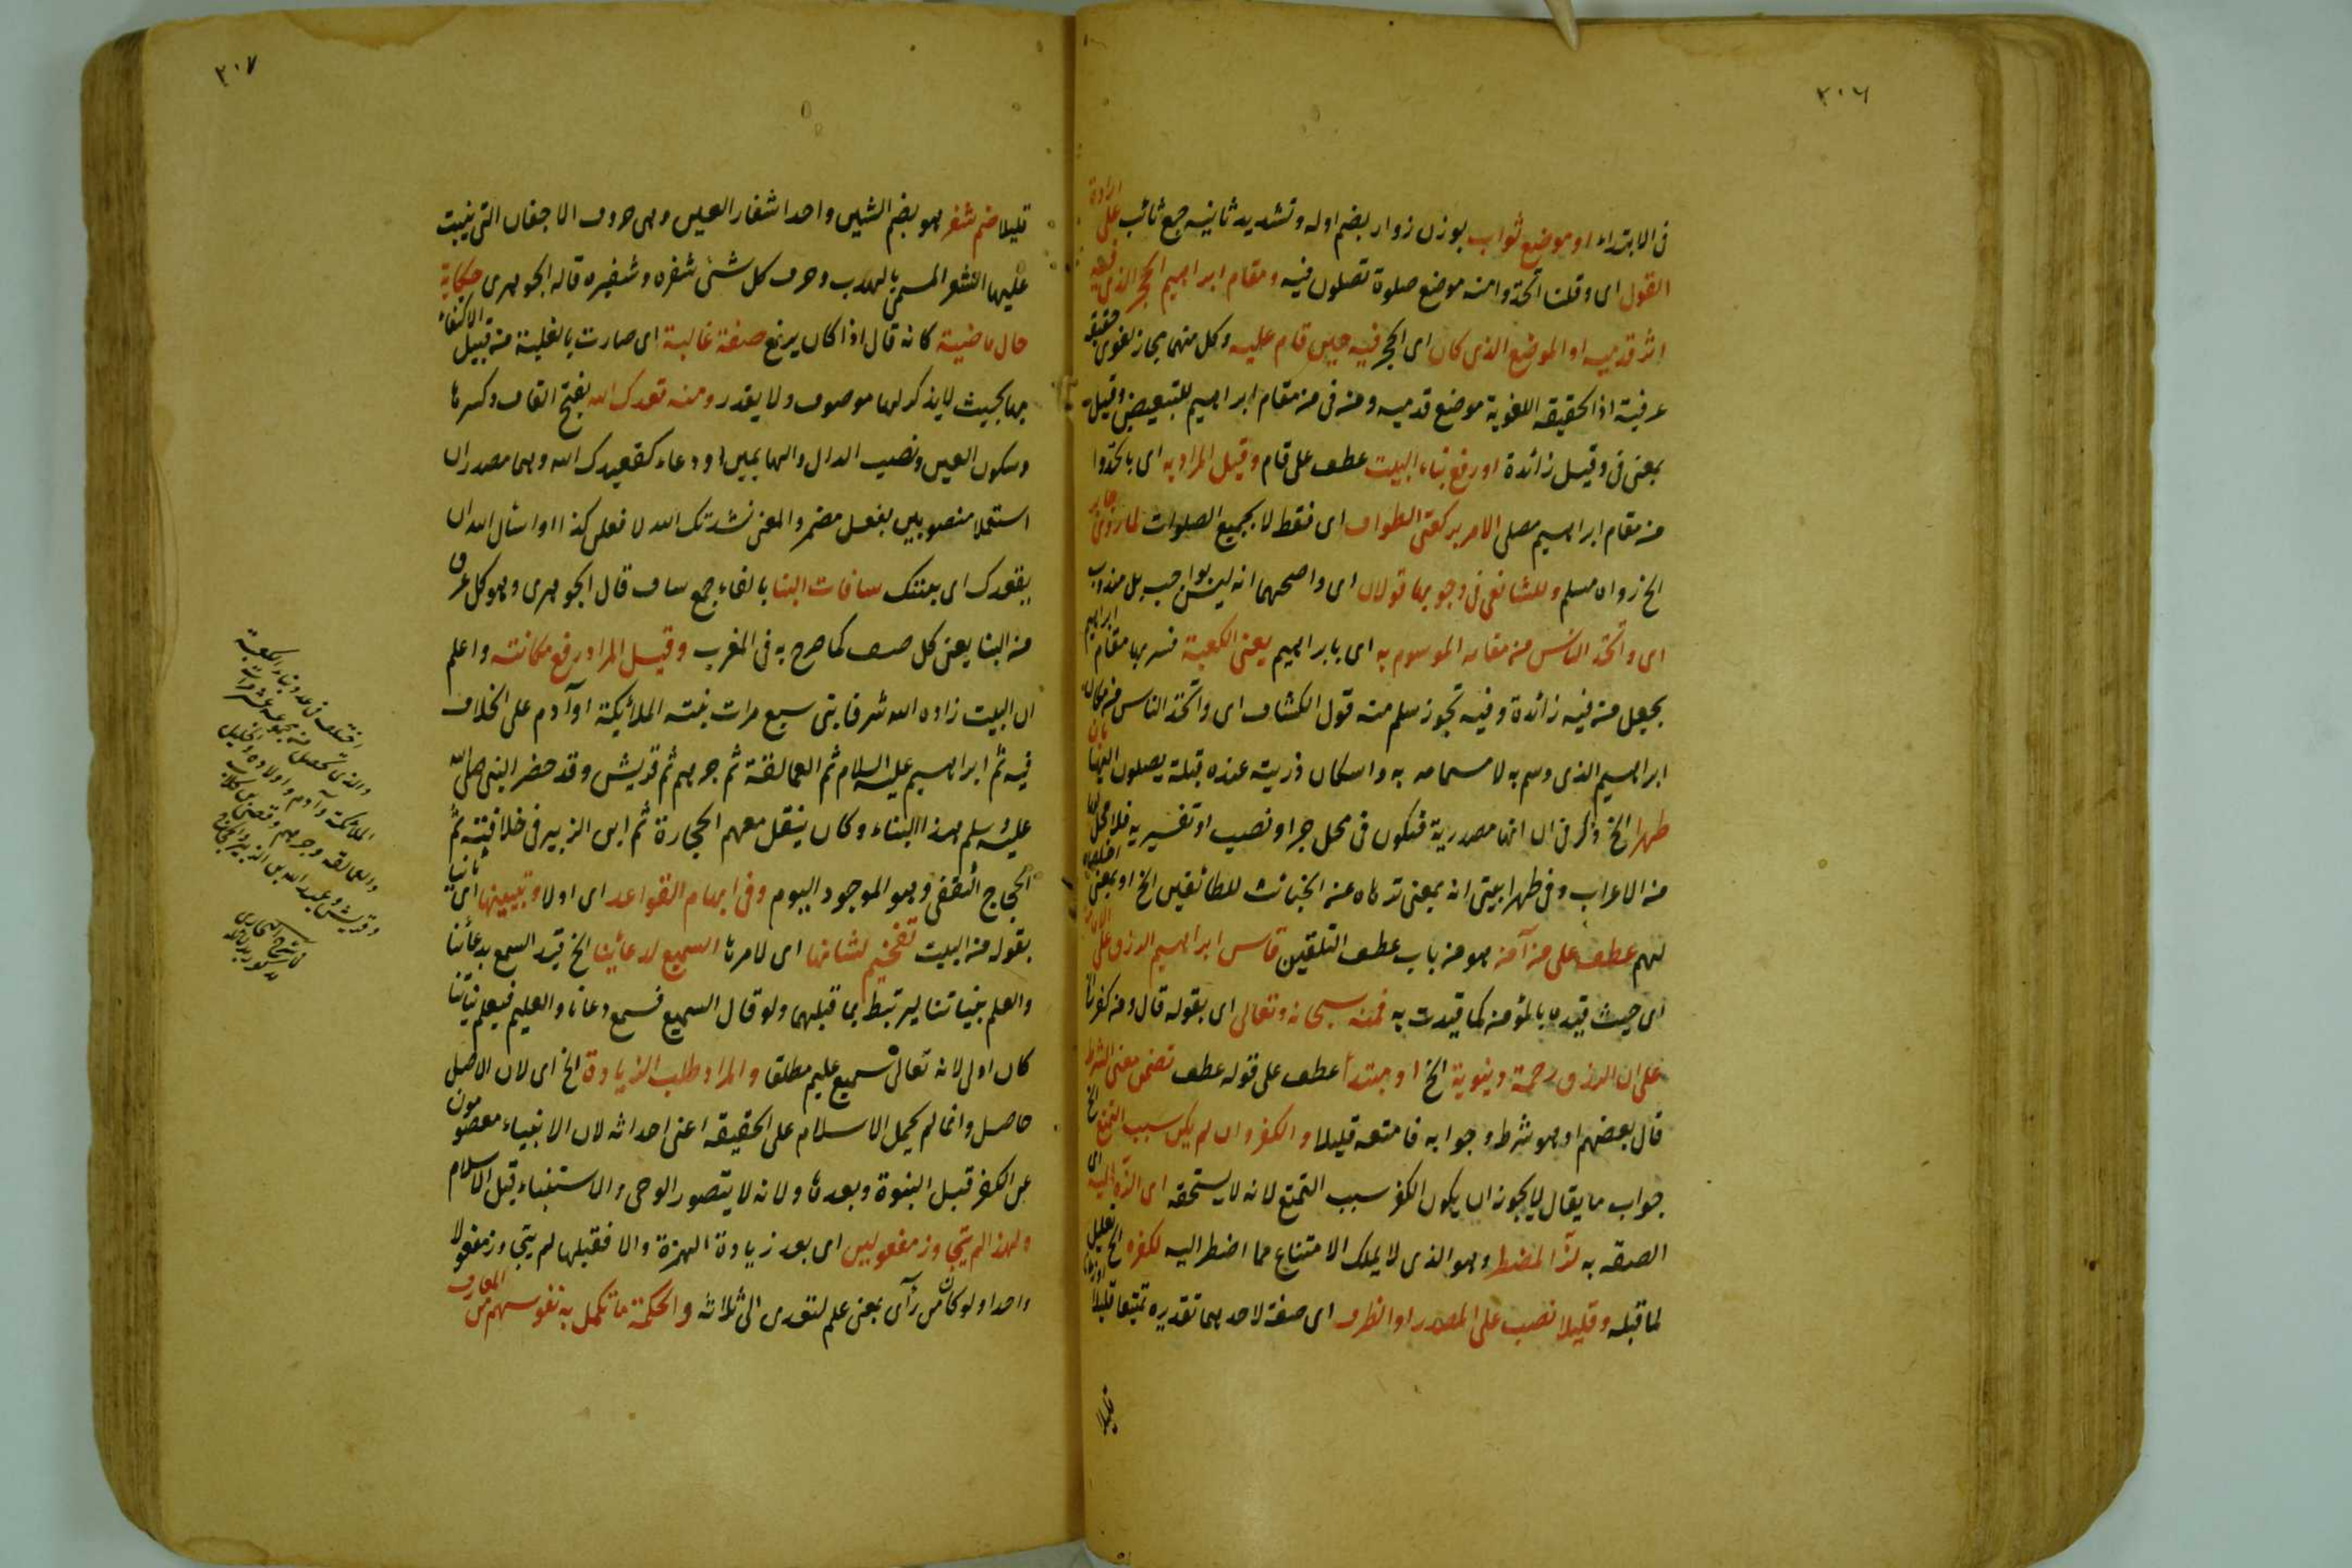 ٢٠٦
فى الابتداء او موضع ثواب بوزن زوار بضم اوله وتشديد ثانيه جمع ثائب على ارادة
القول اى وقلنا اتخذوا منه موضع صلوة تصلون فيه ومقام ابراهيم الحجر الذى فيه
اثر قدميه او الموضع الذى كان اى الحجر فيه حين قام عليه وكل منهما مجاز لغوى حقيقة
عرفية اذ الحقيقة اللغوية موضع قدميه ومن فى من مقام ابراهيم للتبعيض وقيل
بمعنى فى وقيل زائدة او رفع بناء البيت عطف على قام وقيل المراد به اى باتخذوا
من مقام ابراهيم مصلى الامر بركعتى الطواف اى فقط لا بجميع الصلوات لما روى جابر
الخ رواه مسلم وللشافعى فى وجوبهما قولان اى واصحهما انه ليس بواجب بل مندوب
اى واتخذ الناس من مقامه الموسوم به اى بابراهيم يعنى الكعبة فسر بها مقام ابراهيم
بجعل من فيه زائدة وفيه تجوز سلم منه قول الكشاف اى واتخذ الناس من مكان
ابراهيم الذى وسم به لاهتمامه به واسكان ذريته عنده قبلة يصلون اليها بان
طهرا الخ ذكر فى ان انها مصدرية فتكون فى محل جر او نصب او تفسيرية فلا محل لها
من الاعراب وفى طهرا بيتى انه بمعنى نزهاه عن الخبائث للطائفين الخ او بمعنى اخلصاه
لهم عطف على من آمن هو من باب عطف التلقين قاس ابراهيم الرزق على الامامة
اى حيث قيده بالمؤمن كما قيدت به فمنه سبحانه وتعالى اى بقوله قال ومن كفر
على ان الرزق رحمة دنيوية الخ او مبتدأ عطف على قوله عطف تضمن معنى الشرط
قال بعضهم او هو شرط وجوابه فامتعه قليلا والكفر وان لم يكن سبب التمتع الخ
جواب ما يقال لا يجوز ان يكون الكفر سبب التمتع لانه لا يستحقه اى الزه اليه اى
الصقه به لز المضطر وهو الذى لا يملك الامتناع مما اضطر اليه لكفره الخ تعليل
لما قبله وقليلا نصب على المصدر او الظرف اى صفة لاحدهما تقديره تمتيعا قليلا او زمانا
قليلا
٢٠٧
قليلا ضم شفر هو بضم الشين واحد اشفار العين وهى حروف الاجفان التى ينبت
عليها الشعر المسمى بالهدب وحرف كل شئ شفره وشفيره قاله الجوهرى حكاية
حال ماضية كانه قال اذا كان يرفع صفة غالبة اى صارت بالغلبة من قبيل الاكتفاء
بها بحيث لا يذكر لها موصوف ولا يقدر ومنه قعدك الله بفتح القاف وكسرها
وسكون العين ونصب الدال والها يمين او دعاء كقعيدك الله وهما مصدران
استعملا منصوبين بفعل مضمر والمعنى نشدتك الله لا تفعلن كذا او اسأل الله ان
يقعدك اى يمتنك سافات البنا بالفاء جمع ساف قال الجوهرى وهو كل عرق
من البنا يعنى كل صف كما صرح به فى المغرب وقيل المراد رفع مكانته واعلم
ان البيت زاده الله شرفا بنى سبع مرات بنته الملائيكة او آدم على الخلاف
فيه ثم ابراهيم عليه السلام ثم العمالقة ثم جرهم ثم قريش وقد حضر النبى صلى الله
عليه سلم هذا البناء وكان ينقل معهم الحجارة ثم ابن الزبير فى خلافته ثم
الحجاج الثقفى وهو الموجود اليوم وفى ابهام القواعد اى اولا وتبيينها اى ثانيا
بقوله من البيت تفخيم لشانها اى لامرها السميع لدعائنا الخ قيد السمع بدعائنا
والعلم بنياتنا ليرتبط بما قبلهما ولو قال السميع فسمع دعانا والعليم فيعلم نياتنا
كان اولى لانه تعالى سميع عليم مطلقا والمراد طلب الزيادة الخ اى لان الاصل
حاصل وانما لم يحمل الاسلام على الحقيقة اعنى احداثه لان الانبياء معصومون
عن الكفر قبل النبوة وبعدها ولانه لا يتصور الوحى والاستنباء قبل الاسلام
ولهذا لم يتجاوز مفعولين اى بعد زيادة الهمزة والا فقبلها لم يتجاوز مفعولا
واحدا ولو كان من رأى بمعنى علم لتعدى الى ثلاثة والحكمة ما تكمل به نفوسهم من المعارف
اختلف فى عدد بناء الكعبة
والذى تحصل من مجموعه عشر مرات
الملائكة وآدم واولاده والخليل
والعمالقة وجرهم وقصى بن كلاب
وقريش وعبد الله بن الزبير والحجاج